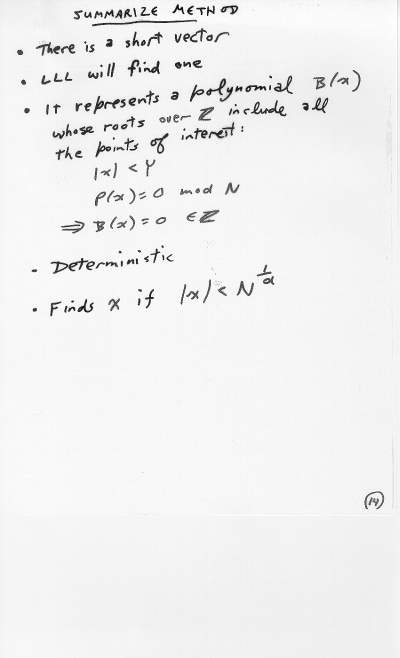 SUMMARIZE METHOD
• There is a short vector
• LLL will find one
• It represents a polynomial B(x)
whose roots over ℤ include all
the points of interest:
|x| < Y
P(x) = 0 mod N
⇒ B(x) = 0 ∈ ℤ
- Deterministic
• Finds x if |x| < N^{1/d}
14